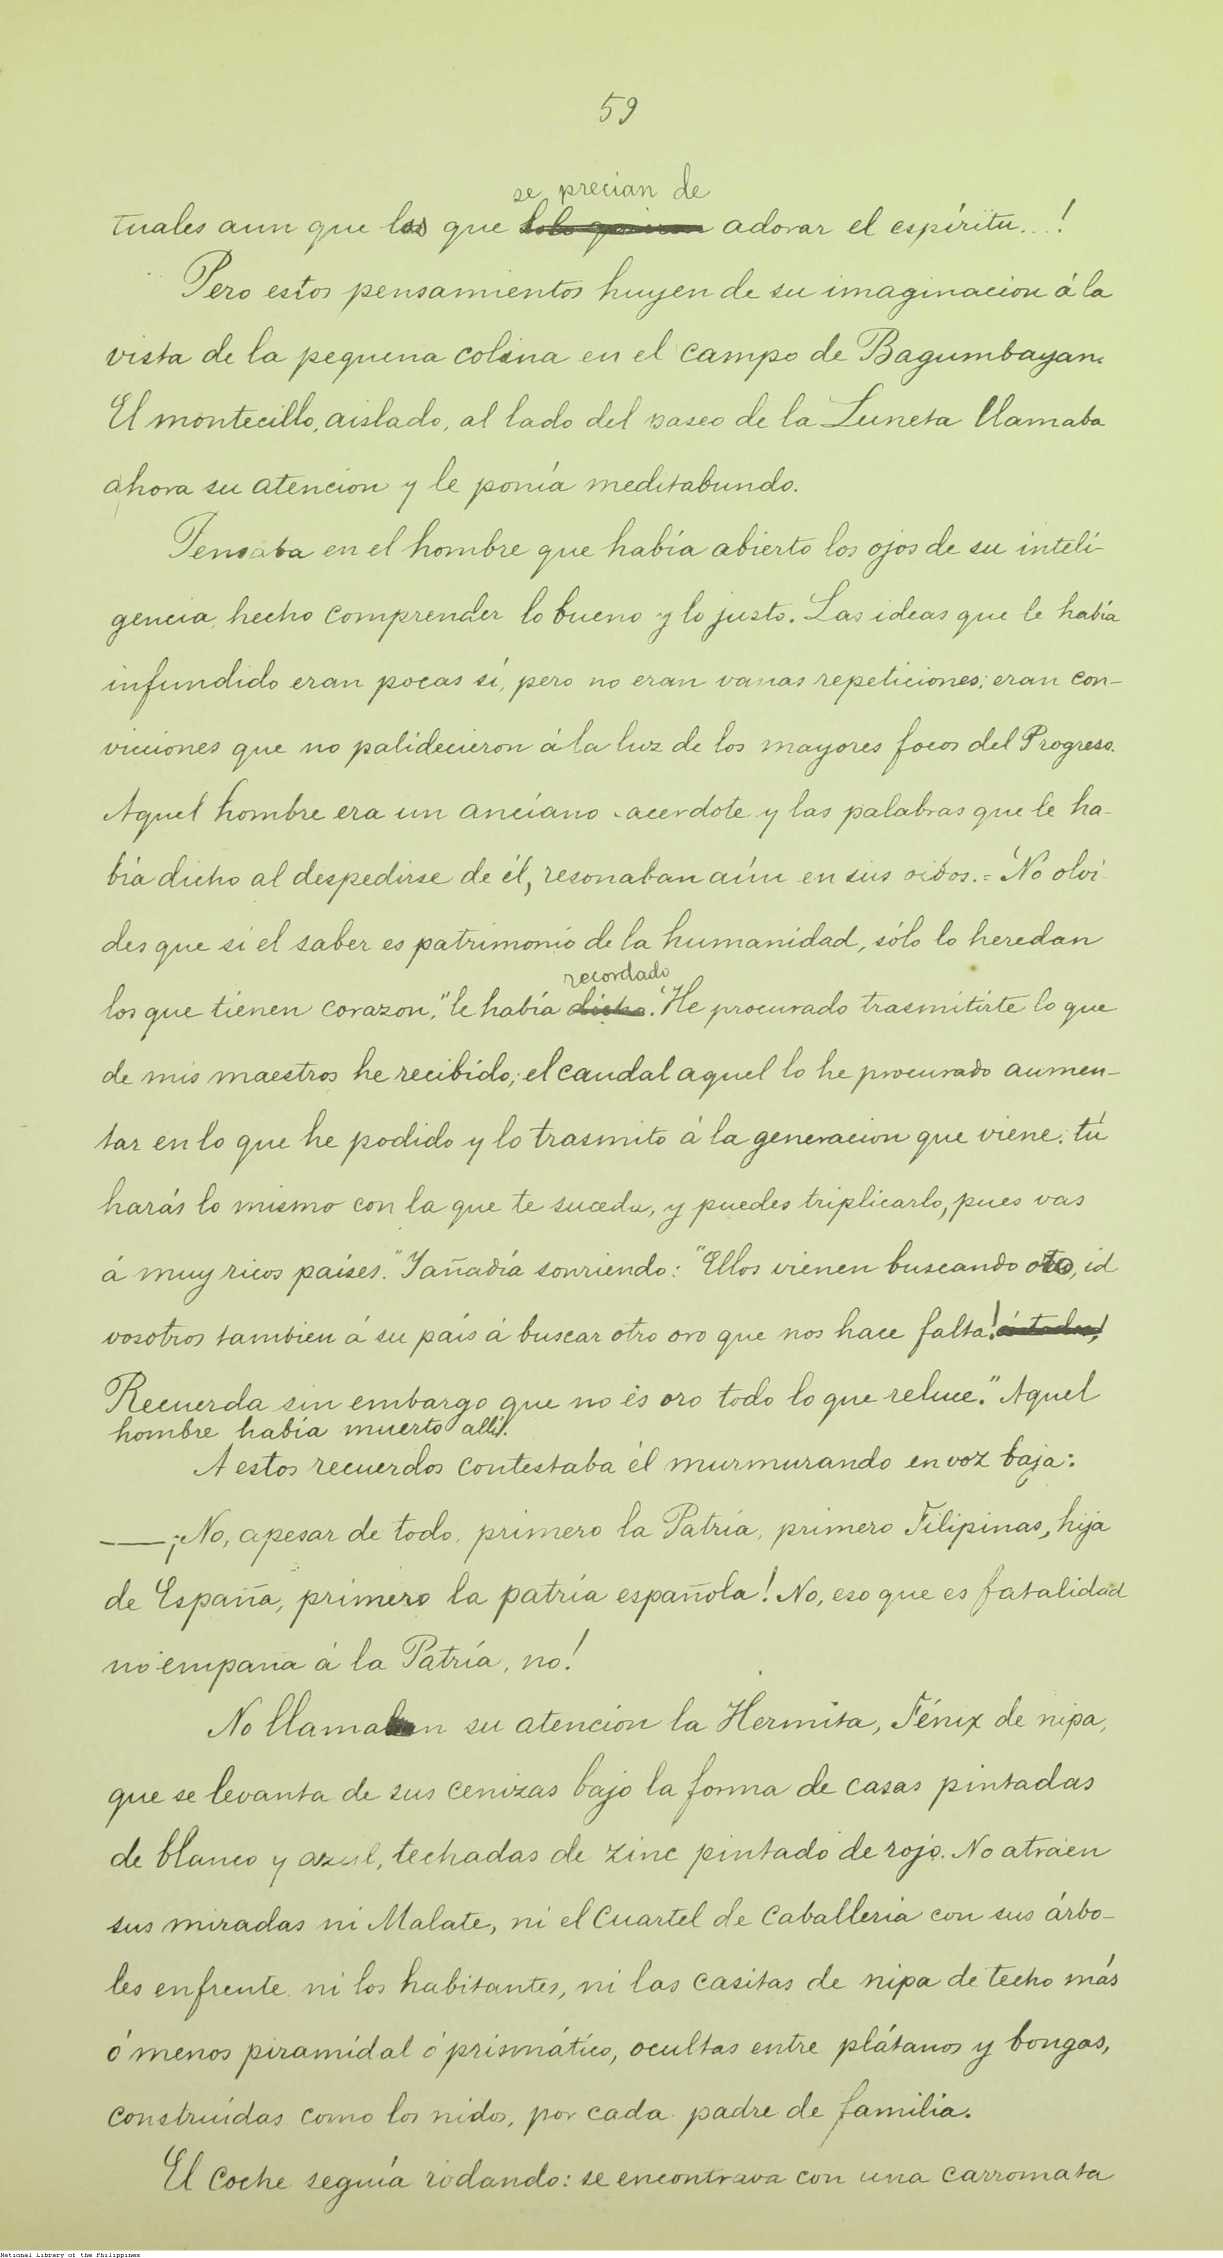 59
se precian de
tuales aun que los que adorar el espíritu...!
Pero estos pensamientos huyen de su imaginacion á la
vista de la pequena colina en el campo de Bagumbayan.
El montecillo, aislado, al lado del paseo de la Luneta llamaba
ahora su atencion y le ponía meditabundo.
Pensaba en el hombre que había abierto los ojos de su inteli-
gencia, hecho comprender lo bueno y lo justo. Las ideas que le había
infundido eran pocas sí, pero no eran vanas repeticiones: eran con-
vicciones que no palidecieron á la luz de los mayores focos del Progreso.
Aquel hombre era un anciano sacerdote y las palabras que le ha-
bía dicho al despedirse de él, resonaban aún en sus oidos.= "No olvi
des que si el saber es patrimonio de la humanidad, sólo lo heredan
recordado
los que tienen corazon," le había dicho. "He procurado trasmitirte lo que
de mis maestros he recibido; el caudal aquel lo he procurado aumen-
tar en lo que he podido y lo trasmito á la generacion que viene: tú
harás lo mismo con la que te suceda, y puedes triplicarlo, pues vas
á muy ricos países." Y añadía sonriendo: "Ellos vienen buscando oro, id
vosotros tambien á su país á buscar otro oro que nos hace falta!
Recuerda sin embargo que no és oro todo lo que reluce." Aquel
hombre había muerto allí.
A estos recuerdos contestaba él murmurando en voz baja:
——¡No, apesar de todo, primero la Patria, primero Filipinas, hija
de España, primero la patria española! No, eso que es fatalidad
no empaña á la Patría, no!
No llamaban su atención la Hermita, Fénix de nipa,
que se levanta de sus cenizas bajo la forma de casas pintadas
de blanco y azul, techadas de zinc pintado de rojo. No atraen
sus miradas ni Malate, ni el Cuartel de Caballeria con sus árbo-
les enfrente ni los habitantes, ni las casitas de nipa de techo más
ó menos piramidal ó prismático, ocultas entre plátanos y bongas,
construídas como los nidos, por cada padre de familia.
El coche seguía rodando: se encontrava con una carromata
National Library of the Philippines